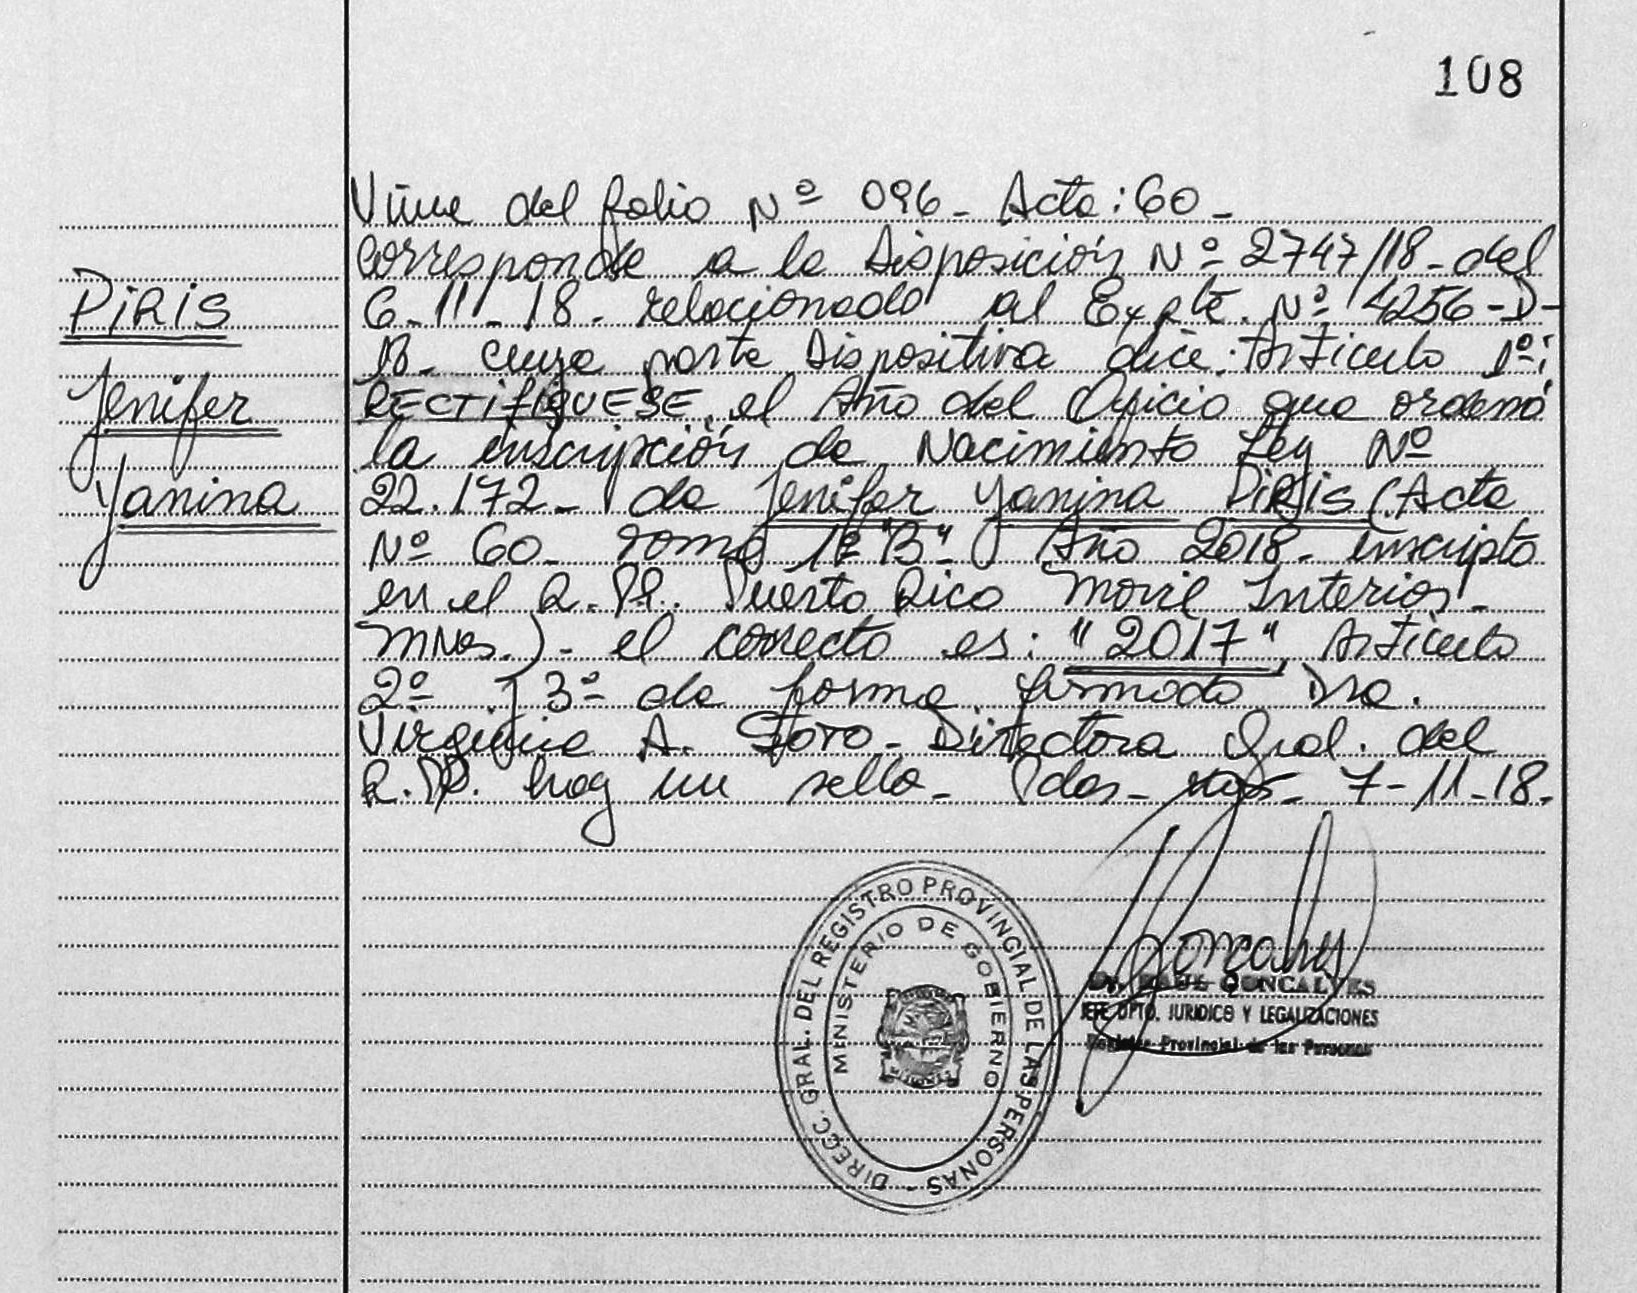 108
Viene del folio Nº 096 - Acta: 60 -
Corresponde a la Disposición Nº 2747/18 - del
PIRIS
6-11-18 - relacionado al Expte. Nº 4256-D-
18 - cuya parte dispositiva dice: Artículo 1º:
Jenifer
RECTIFIQUESE, el Año del Oficio que ordenó
la inscripción de Nacimiento Ley Nº
Yanina
22.172 - de Jenifer Yanina PIRIS (Acta
Nº 60 - Tomo 1º "B" - Año 2018 - inscripto
en el R.PP. Puerto Rico Movil Interior -
Mnes.) - el correcto es: "2017", Artículo
2º y 3º de forma firmado Dra.
Virginia A. Soto - Directora Gral. del
R.PP. hay un sello - Pdas - 7-11-18.
DIRECC. GRAL. DEL REGISTRO PROVINCIAL DE LAS PERSONAS -
MINISTERIO DE GOBIERNO
MISIONES
Goncalves
Dr. RAUL GONCALVES
JEFE DPTO. JURIDICO Y LEGALIZACIONES
Registro Provincial de las Personas